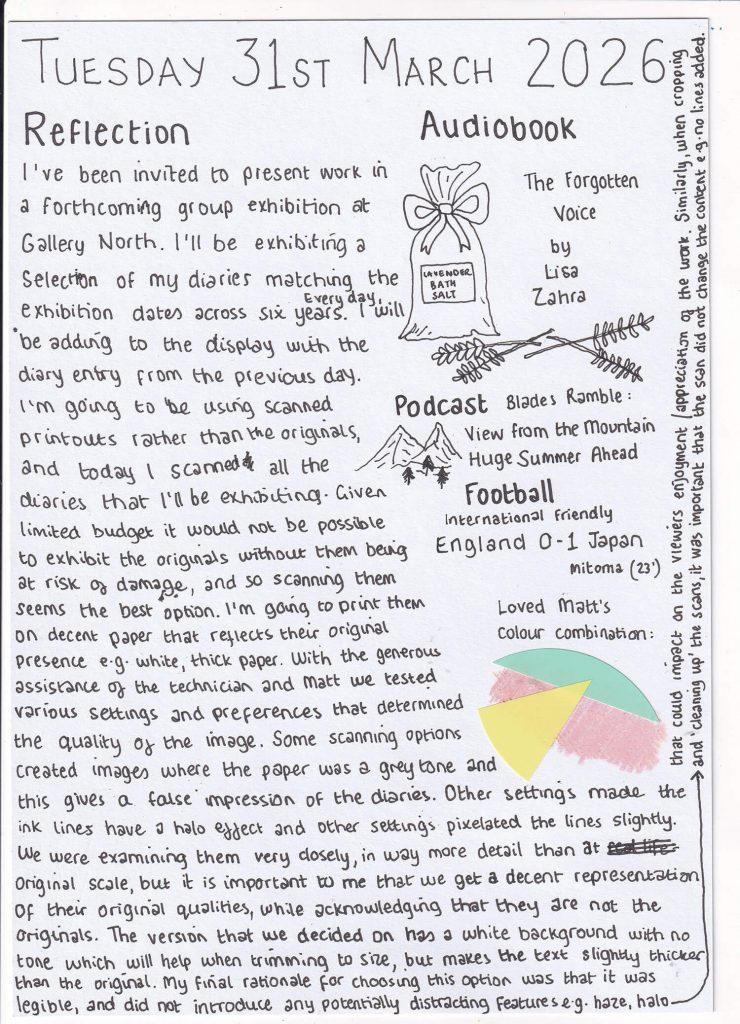 TUESDAY 31ST MARCH 2026
Reflection
I've been invited to present work in
a forthcoming group exhibition at
Gallery North. I'll be exhibiting a
selection of my diaries matching the
exhibition dates across six years. Every day, I will
be adding to the display with the
diary entry from the previous day.
I'm going to be using scanned
printouts rather than the originals,
and today I scanned all the
diaries that I'll be exhibiting. Given
limited budget it would not be possible
to exhibit the originals without them being
at risk of damage, and so scanning them
seems the best option. I'm going to print them
on decent paper that reflects their original
presence e.g. white, thick paper. With the generous
assistance of the technician and Matt we tested
various settings and preferences that determined
the quality of the image. Some scanning options
created images where the paper was a grey tone and
this gives a false impression of the diaries. Other settings made the
ink lines have a halo effect and other settings pixelated the lines slightly.
We were examining them very closely, in way more detail than at
original scale, but it is important to me that we get a decent representation
of their original qualities, while acknowledging that they are not the
originals. The version that we decided on has a white background with no
tone which will help when trimming to size, but makes the text slightly thicker
than the original. My final rationale for choosing this option was that it was
legible, and did not introduce any potentially distracting features e.g. haze, halo
that could impact on the viewers enjoyment/appreciation of the work. Similarly, when cropping
and 'cleaning up' the scans, it was important that the scan did not change the content e.g. no lines added.
Audiobook
LAVENDER
BATH
SALT
The Forgotten
Voice
by
Lisa
Zahra
Podcast Blades Ramble:
View from the Mountain
Huge Summer Ahead
Football
International Friendly
England 0-1 Japan
Mitoma (23')
Loved Matt's
colour combination: